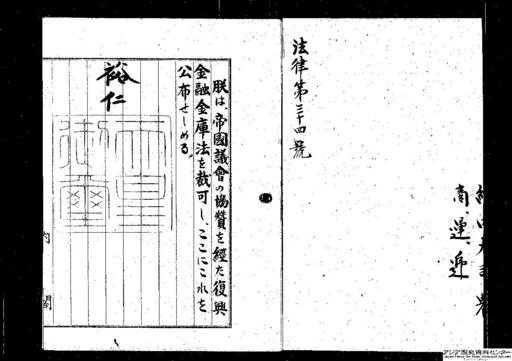 法律第三十四號
朕は、帝國議會の協贊を經た復興
金融金庫法を裁可し、ここにこれを
公布せしめる。
裕仁
天皇
御璽
内
閣
商、運、逓
アジア歴史資料センター